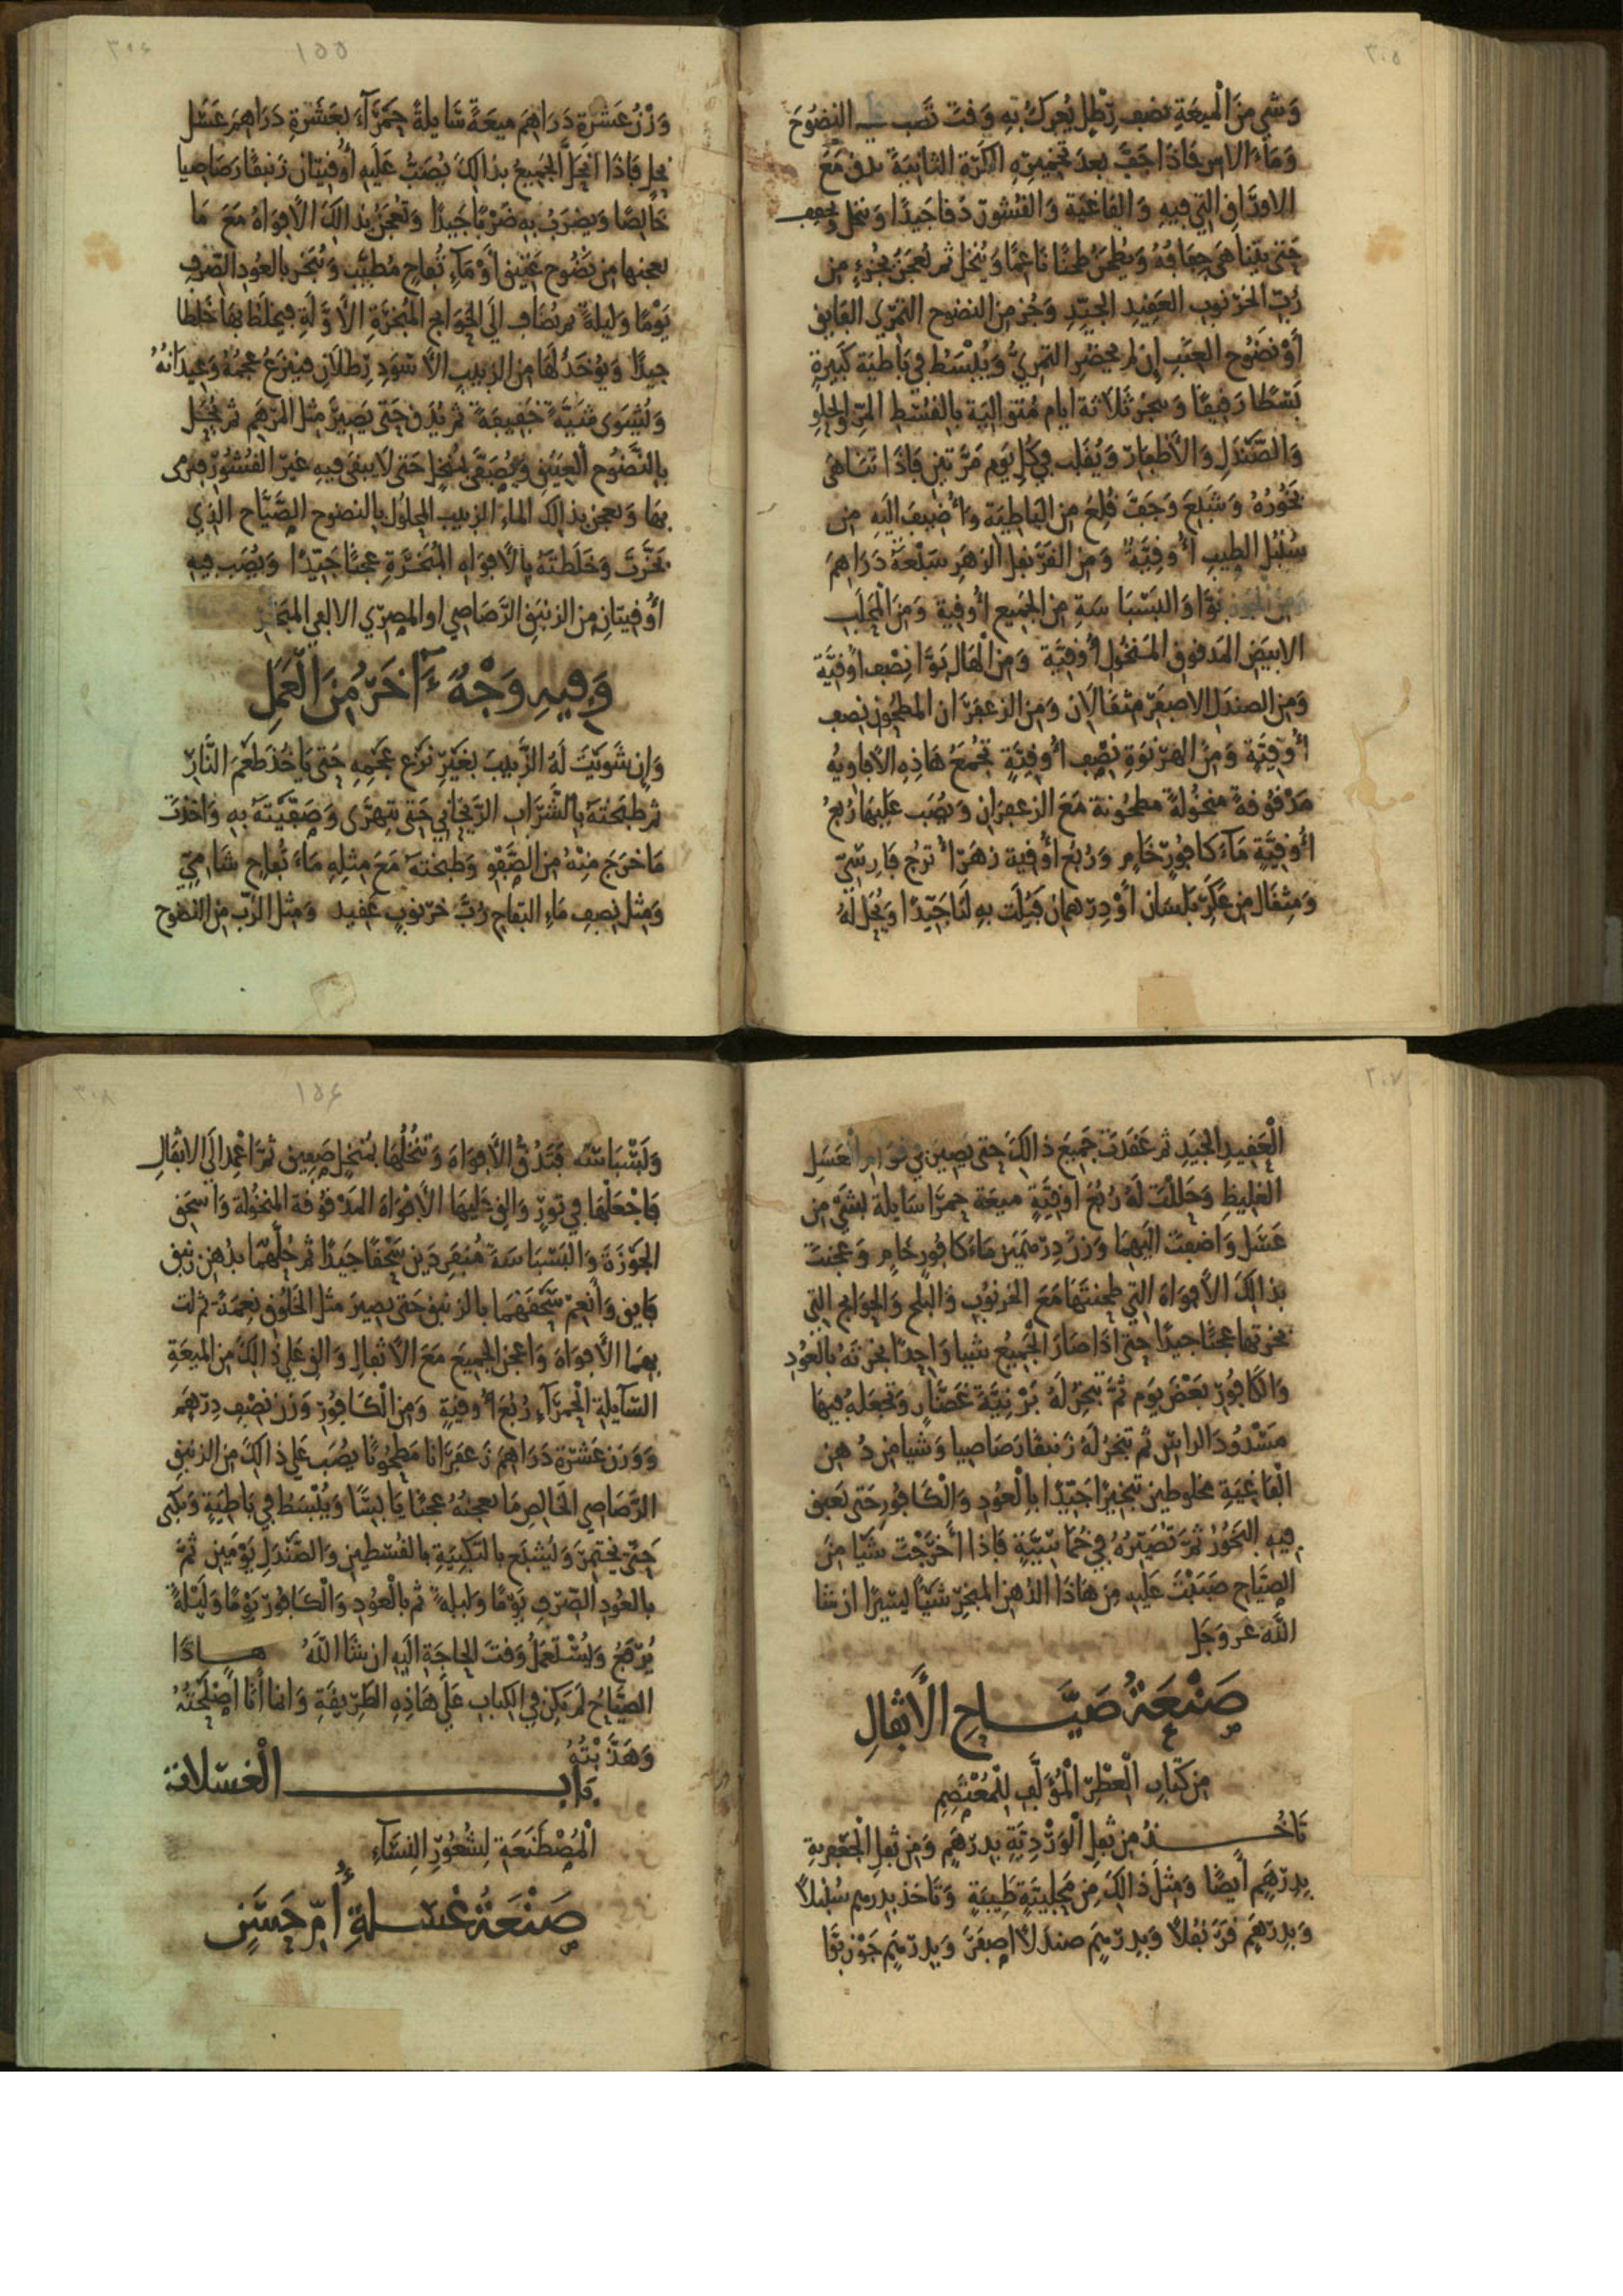 ٣٠٥
وَشَي مِنَ الْميعَةِ نصف رِّطْلِ يُعرَكُ بِهِ وَقتَ تَصُبـ ـيه النضُوحَ
وَمَاءَ الاس فَاذَا جَفَّ بعدَ تخميرِه الكَرّةِ الثانِيَةَ يدق مَعَ
الاورَاق التي فِيهِ وَالفَاغيَة وَالقُشُورِ دَقا جَيدًا وَينخل ويجفف
حَتى يتناهَى جفَافُهُ وَيُطحَنُ طحنًا نَاعِمًا وَيُنخَل ثم يُعجَنُ بجُزءٍ من
رُبّ الخرنوب العَقِيدِ الجيّدِ وَجُز من النضوح التمرّي الفَايق
أوْ نضُوح العِنَبِ إن لم يحضُر التمريُّ وَيُبْسَطُ في بَاطيَة كَبيرةٍ
بَسْطًا رَقيقًا وَيبخر ثَلَاثَة ايام مُتَوالِيَة بالقُسْطِ المرّ والحلوِ
وَالصَّنْدَلِ وَالأظفار وَيُقَلب في كل يَوم مَرّتين فَاذَا تَنَاهَى
بَخُورُهُ وَشَبعَ وَجَفَّ قُلِعَ مِنَ البَاطِيَةِ وَأُضيفَ اليَهِ مِن
سُنْبُل الطِيب أُوقيَّةٌ وَمِنَ القَرَنفل الزهَر سَبْعَةَ دَرَاهِمَ
وَمِن الجَوز بَوَّا وَالبَسْبَاسَةِ مِنَ الجَميع أُوقية وَمِنَ الْمَحلَب
الابيَض المَدقوق المَنخُول أُوقيَّة وَمِنَ الهَال بَوَّا نِصْف اُوقيَّة
وَمِن الصندَل الاصفَر مثقَالَان وَمِن الزعفرَان المطحون نصف
أُوقيَّة وَمِنَ الهرنوَةِ نِصْف أُوقيَّةٍ تجُمَعُ هَاذِهِ الأَفاويهُ
مَدْقُوقةً منخُولةً مطحُونة مَعَ الزعفرَان وَيُصَب عَلَيها رُبعُ
أُوقيَّةٍ مَآءَ كَافورٍ خَامٍ وَرُبُع أُوقية زَهَر أُترج فَارِسيّ
وَمثقَال مِن عَكَر بَلسَان أوْ دِرهمان فَيُلَت بهِ لَتا جَيّدًا وَيُحَل لَهُ
٣٠٦
١٥٥
وَزْنُ عَشرَةِ دَرَاهِمَ ميعَةً سَايلةً حَمرَآءَ بعَشَرَةِ دَرَاهِمَ عَسَل
نحل فَاذَا انحَلَّ الجَميعُ بذالكَ يُصَبُّ عَلَيهِ أُوقيتان زَنبقًا رَصَاصيا
خَالِصًا وَيضرَبُ بهِ ضَرْبًا جَيدًا وَتُعجَنُ بذالكَ الأفوَاهُ مَعَ مَا
يعجنها مِن نَضُوح عَتيق أوْ مَآءِ تُفاح مُطيَّب وَتُبَخر بالعُودِ الصّرفِ
يَوْمًا وَليلةً ثم يُضَاف الَى الحوَائج المُبَخرَةِ الأوَّلَةِ فيخلَط بهَا خَلطا
جيدًا وَيُؤخَذ لَهَا من الزبيبِ الأسْوَدِ رِطلَانِ فيَنزعُ عجمُهُ وَعِيدَانُهُ
وَيُشوَى شَيَّةً خَفِيفةً ثم يُدَق حَتى يَصِيرَ مثل المَرهَم ثم يُحَل
بالنَّضُوح العتيق وَيُصَفَى بمُنخل حَتى لَا يبقى فيهِ غيرَ القُشُورِ فيرمى
بهَا وَيعجن بذالك الماء الزبيب المحلول بالنضوح الصَّيَّاح الذِي
بخّرتَ وَخَلَطتَهُ بالأفوَاهِ المُبَخّرَةِ عجنًا جَيّدًا وَيُصَب فيه
أُوقيتَانِ مِن الزنبَقِ الرَّصَاصي او المِصري الالفي المبَخر
وَفِيهِ وَجْهٌ ءَاخَرُ مِنَ الْعَمَلِ
وَإن شَويتَ لَهُ الزَّبيبَ بغَيْرِ نَزع عَجَمِهِ حَتى يَاخُذَ طَعْمَ النَّارِ
ثم طبَختَهُ بالشّرَاب الرَّيحَاني حَتى يتهرَّى وَصَفَّيتَهُ بهِ وَاخذتَ
مَا خَرَجَ مِنْهُ مِنَ الصَّفْوِ وَطبخْتَهُ مَعَ مِثلِهِ مَاءَ تُفاح شَامِيّ
وَمِثل نِصفِ مَاءِ التفاح رُبَّ خرنوبٍ عَقيد وَمِثل الرُّب من النضُوح
٣٠٧
الْعَقِيدِ الجَيدِ ثم عَقَدتَ جَميعَ ذالكَ حَتى يَصِيرَ في قوَام الْعَسَلِ
الغليظِ وَحَلَلْتَ لَهُ رُبُعَ أوقيَّةٍ ميعَة حمرَا سَايلَة بشَيْ مِن
عَسَل وَاضفتَ اليَهِمَا وَزنَ دِرهمَين مَاءَ كَافورٍ خَامٍ وَعَجنتَ
بذالكَ الأفوَاهَ التي طحنتَهَا مَعَ الخرنُوب وَالبلح وَالحَوَائج التي
بخرتهَا عجنًا جيدًا حَتى اذَا صَارَ الجَميعُ شَيا وَاحِدًا بخرتَهُ بالعُودِ
وَالكَافورِ بَعْضَ يوَم ثُمَّ تبخرُ لَهُ بَرْنيَّةَ غَضَّارٍ وَتجعَلهُ فيهَا
مَسْدُودَ الراس ثم تبَخرُ لَهُ زَنبقا رَصَاصِيا وَشيا مِن دُهن
الْفَاغيَةِ مخلوطين تبخيرًا جَيّدًا بالْعُودِ وَالْكَافُورِ حَتى يَعبق
فِيهِ البَخُورُ ثُمَّ تُصَيّرُهُ في خُمَاسِيَّةٍ فَاذَا أخرَجْتَ شَيًا مِنَ
الصيّاح صَبَبْتَ عَلَيهِ مِن هَاذَا الدُهن المبخَّرِ شَيًّا يَسيرًا ان شا
اللَّه عز وَجَل
صَنْعَةُ صَيَّــــاحِ الْأَثْفَالِ
مِن كتَابِ الْعِطْرِ الْمُؤَلَّفِ لِلْمُعْتَصِمِ
تَاخُــــذُ مِن ثفلِ الْوَرْدِيَّةِ بدِرهَمٍ وَمِن ثفل الجَعْفريةِ
بِدِرهَمٍ أيضًا وَمِثلَ ذالكَ مِن مَحْلبيَّةٍ طَيبَةٍ وَتَاخذ بدرهم سُنْبلاً
وَبدِرهَمٍ قَرَنفُلاً وَبدِرهَمٍ صندَلاً اصفَرَ وَبدِرهَمٍ جَوْز بَوَّا
٣٠٨
١٥٦
وَبَسْبَاسَة فَتَدُقُّ الأَفوَاهَ وَتَنخُلُهَا بمُنخلٍ صَفيقٍ ثُمَّ اعْمِد الَى الاثفَالِ
فَاجْعَلهَا في تَورٍ وَالقِ عَلَيهَا الأَفوَاهَ المَدْقوقة المنخُولَة وَاسْحَق
الجَوْزَةَ وَالبَسْبَاسَةَ مُنفَرِدَين سَحْقًا جَيدًا ثم حُلَّهُمَا بدُهنِ زنبق
فَايق وَأَنعِمْ سَحْقَهُمَا بالزنبق حَتى يصِيرَ مثلَ الخَلُوق نِعمَةً ثم لت
بهمَا الأَفوَاهَ وَاعجن الجميعَ مَعَ الأَثفالِ وَالقِ عَلى ذالكَ مِنَ الميعَةِ
السَّآيلةِ الْحَمرَآءِ رُبُعَ أُوقيةٍ وَمِنَ الْكَافُورِ وَزنَ نِصْفِ دِرهَمٍ
وَوَزنَ عَشَرَةِ دَرَاهِمَ زَعفَرَانا مَطحُونًا يصُبَ عَلى ذالكَ مِنَ الزنبَقِ
الرَّصَاصِي الخَالِصِ مَا يعجنُهُ عجنًا يَابسًا وَيُبْسَطُ في بَاطيَةٍ وَيُكبى
حَتّى يختمِرَ وَيَشبَع بالتَكبيَةِ بالقُسْطَين وَالصَّنْدَلِ يَوْمَينِ ثُمَّ
بالعُودِ الصّرفِ يَوْمًا وَليلةً ثم بالْعُودِ وَالْكَافُورِ يَوْمًا وَلَيْلَةً
يُرفَعُ وَيُسْتَعمَلُ وَقتَ الحاجَةِ اليَهِ ان شَا اللَّهُ هــاذَا
الصيّاحُ لَم يَكن في الكتاب عَلَى هَاذِهِ الطَرِيقَةِ وَانما أنَا اصْلَحْتُهُ
وَهَذَّبْتُهُ
بَابـــــــ الْغسْلَات
الْمُصْطَنَعَةِ لِشُعُورِ النِسَآءِ
صَنْعَةُ غسْــلَةِ أُمِّ حَسَنٍ